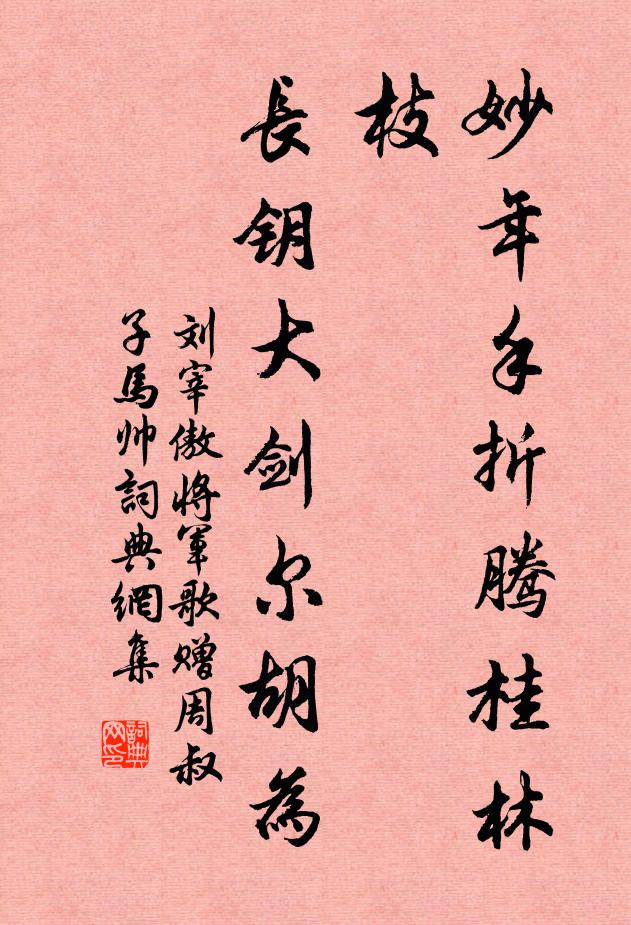 妙年手折腾桂林
枝
長钥大剑尔胡為
刘宰傲將軍歌赠周叔
子馬帅詞典網集
詞典
网印